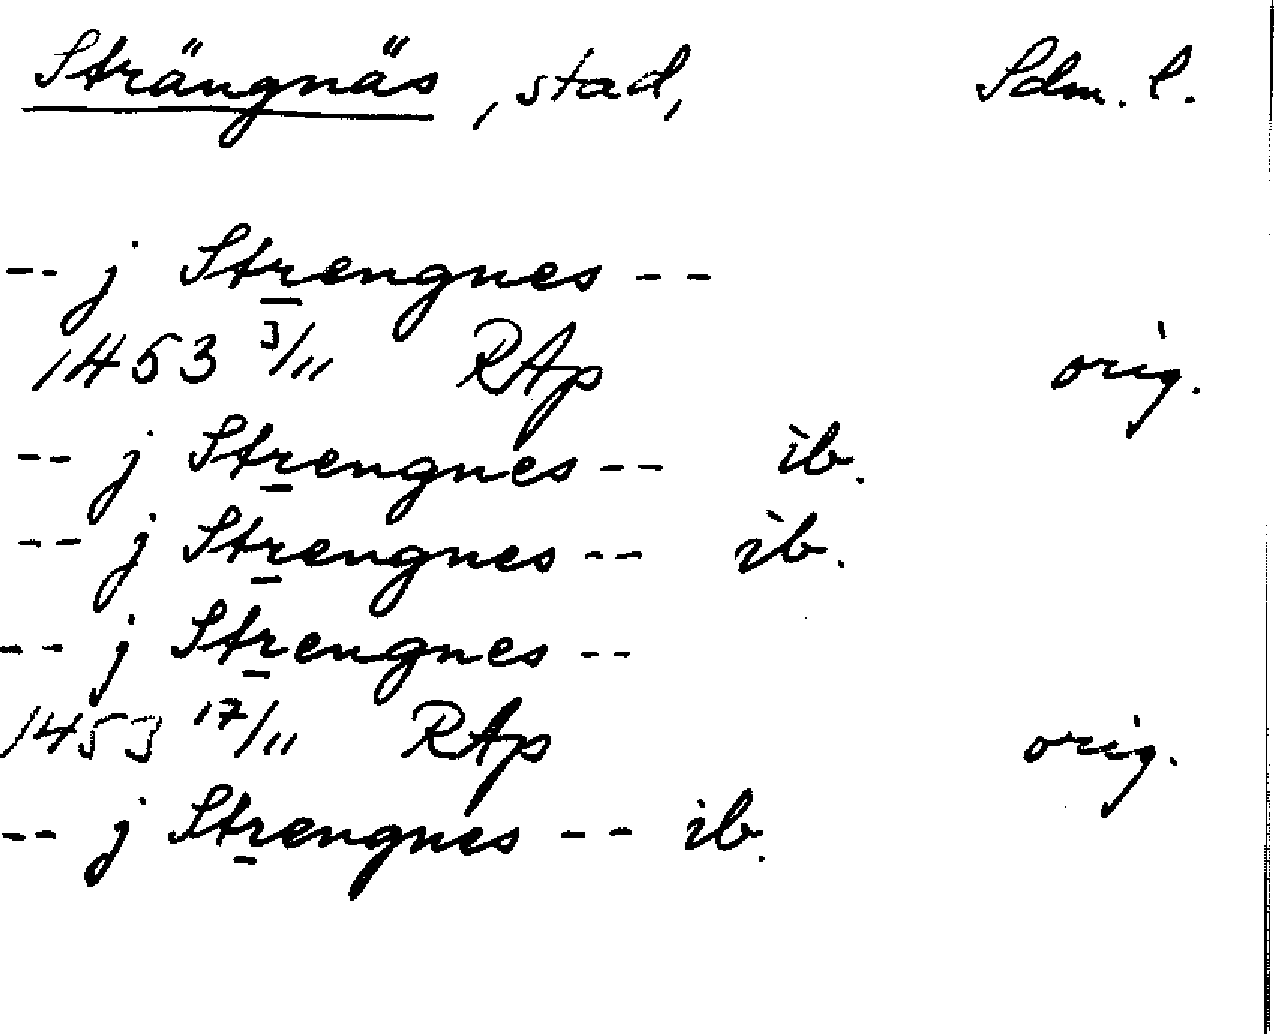 Strängnäs, stad, Sdm. l.
-- j Strengnes --
1453 3/11 RAp orig.
-- j Strengnes -- ib.
-- j Strengnes -- ib.
-- j Strengnes --
1453 17/11 RAp orig.
-- j Strengnes -- ib.